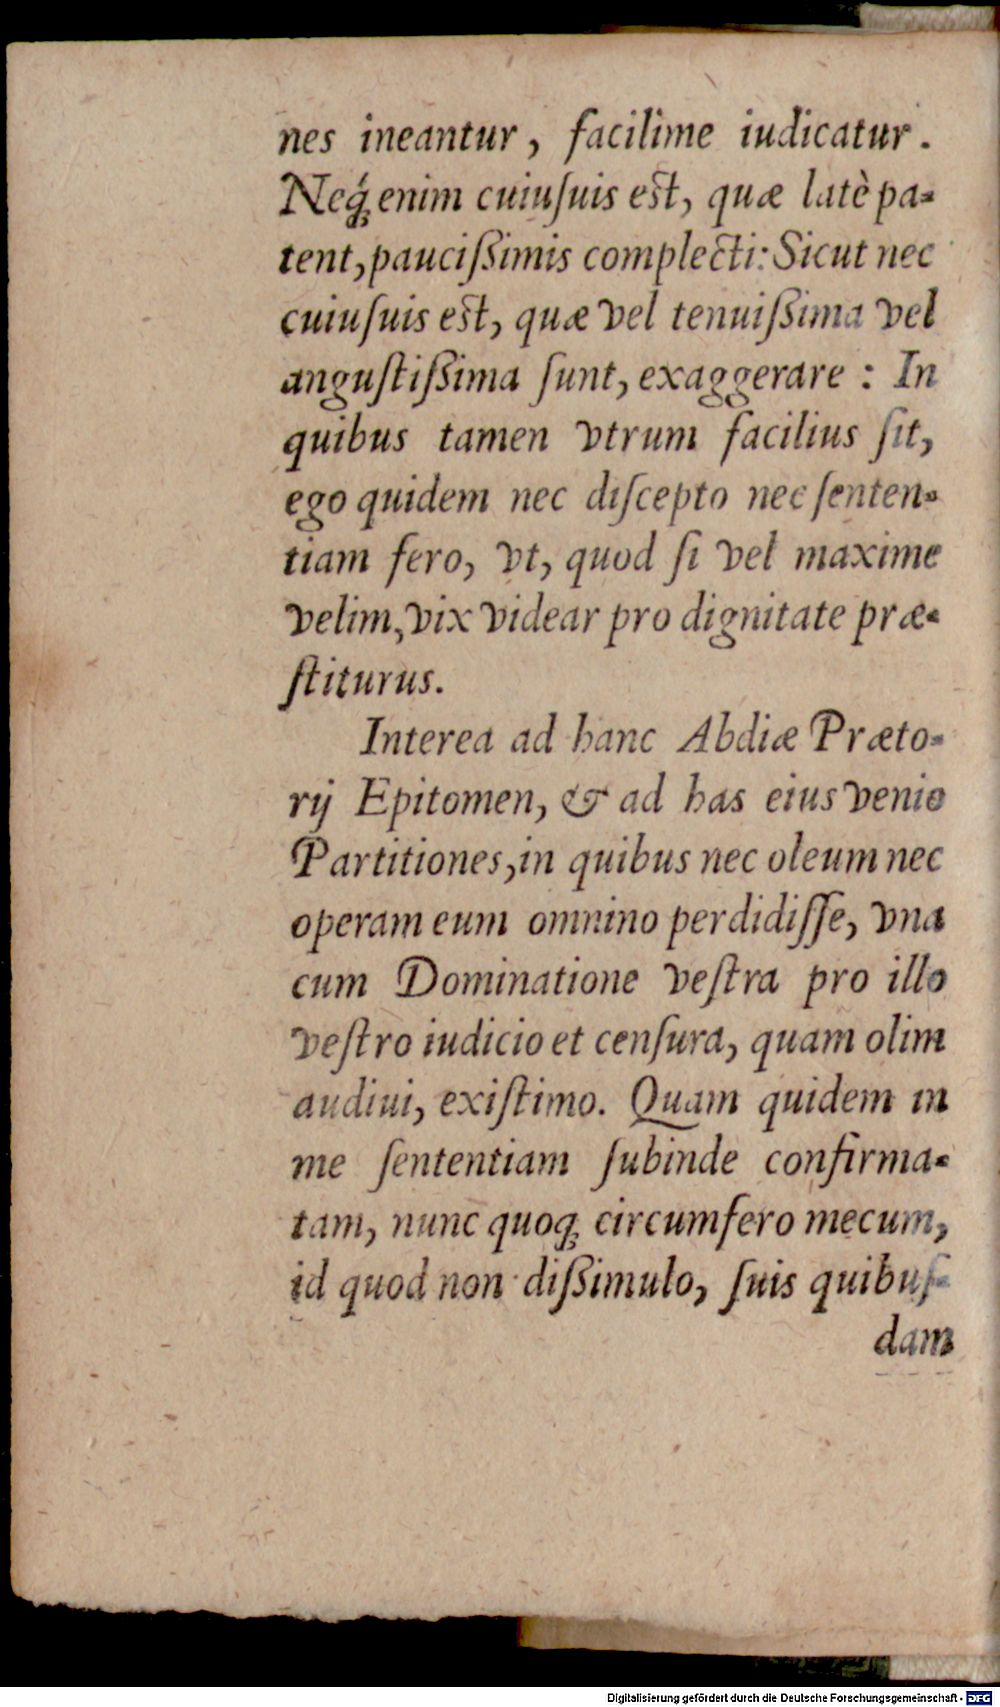 nes ineantur, facilime iudicatur.
Neq́ꝫ enim cuiuſuis est, quæ latè pa-
tent, pauciſsimis complecti: Sicut nec
cuiuſuis est, quæ vel tenuiſsima vel
anguſtiſsima ſunt, exaggerare: In
quibus tamen vtrum facilius ſit,
ego quidem nec diſcepto nec ſenten-
tiam fero, vt, quod ſi vel maxime
velim, vix videar pro dignitate præ-
ſtiturus.
Interea ad hanc Abdiæ Præto-
rij Epitomen, & ad has eius venio
Partitiones, in quibus nec oleum nec
operam eum omnino perdidiſſe, vna
cum Dominatione veſtra pro illo
veſtro iudicio et cenſura, quam olim
audiui, exiſtimo. Quam quidem in
me ſententiam ſubinde confirma-
tam, nunc quoqꝫ circumfero mecum,
id quod non diſsimulo, ſuis quibuſ-
dam
Digitalisierung gefördert durch die Deutsche Forschungsgemeinschaft - DFG